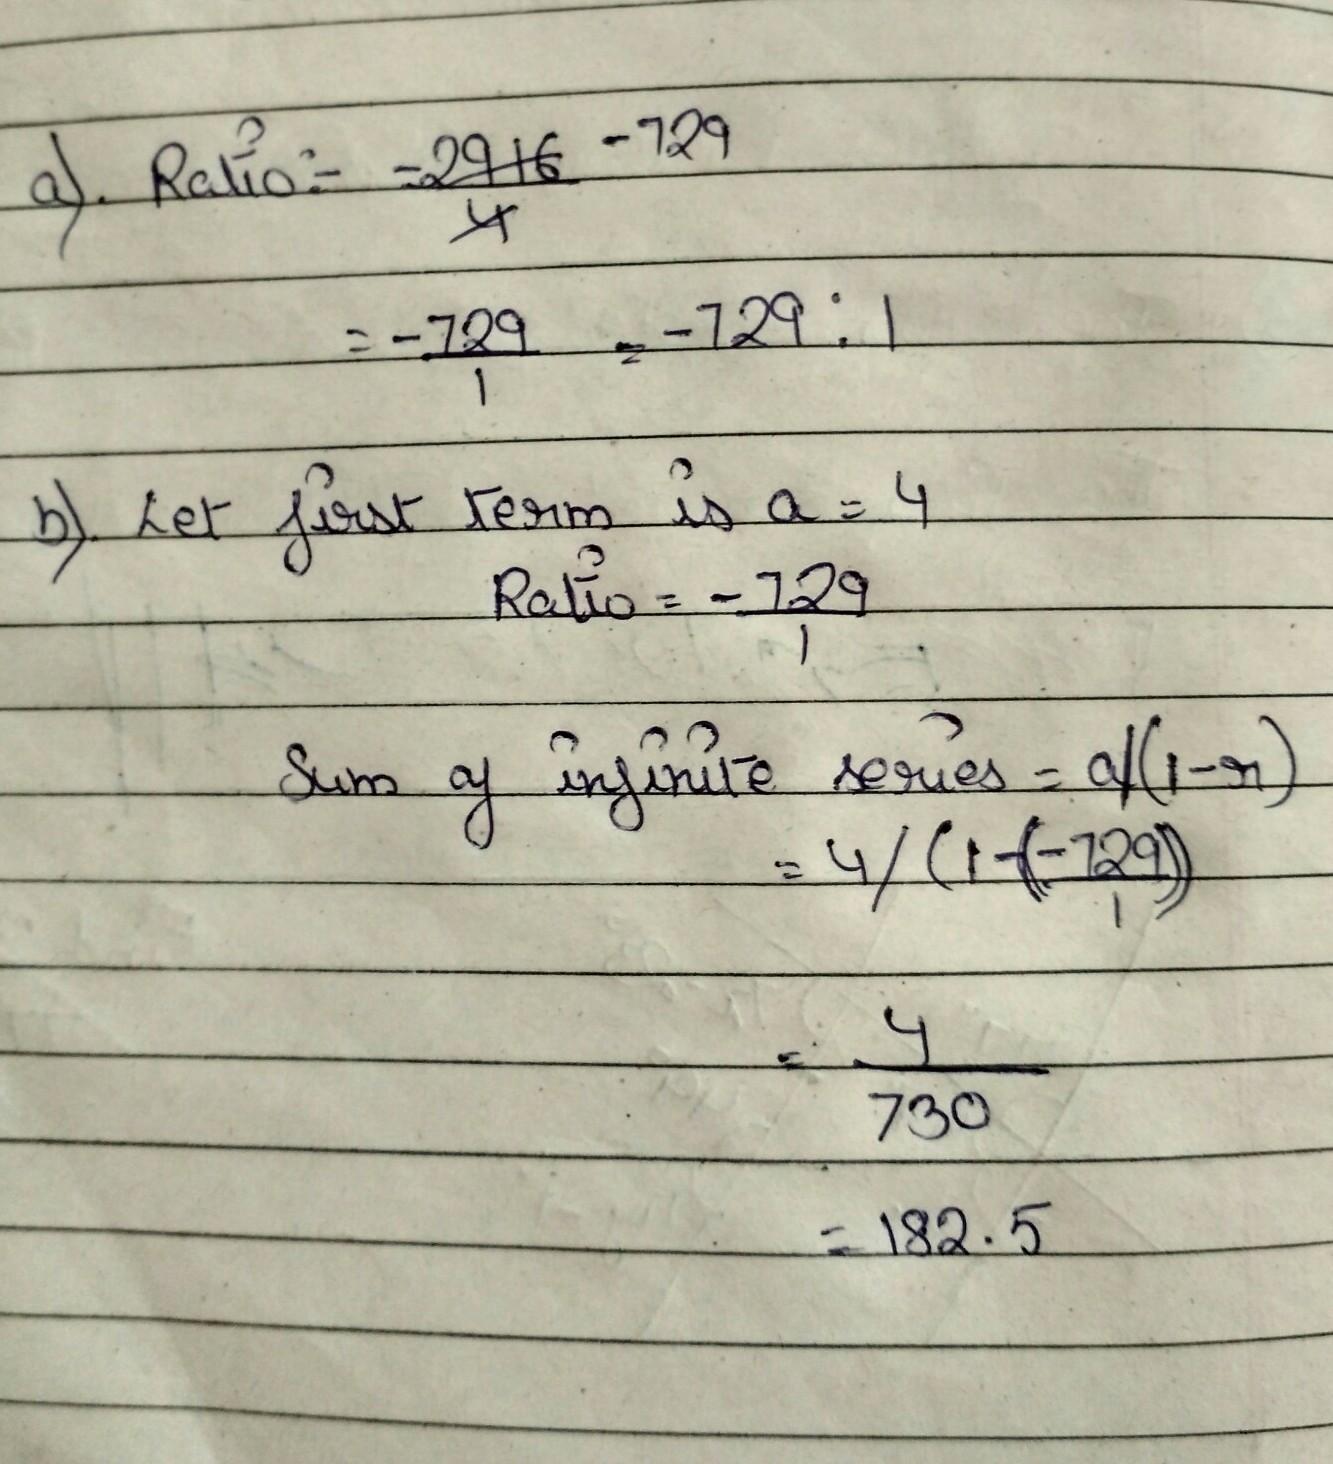 a). Ratio:- -2916 -729
4
= -729 = -729 : 1
1
b). Let first term is a = 4
Ratio = -729
1
Sum of infinite series = a/(1-r)
= 4/(1-(-729))
1
= 4
730
= 182.5